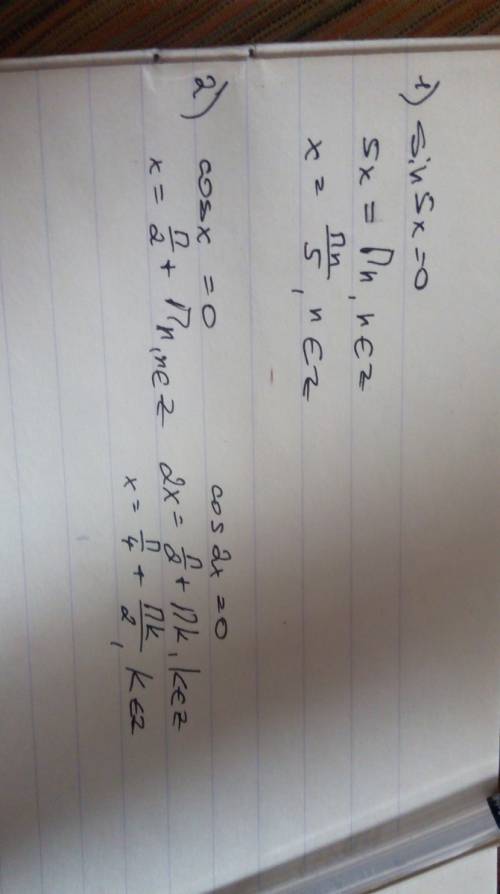 1) sin 5x = 0
5x = Пn, n∈z
x = Пn/5, n∈z
2) cosx = 0
x = П/2 + Пn, n∈z
cos 2x = 0
2x = П/2 + Пk, k∈z
x = П/4 + Пk/2, k∈z